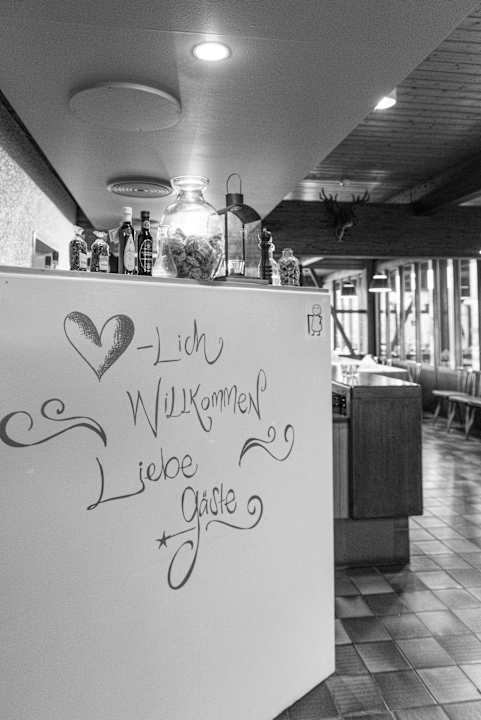 -Lich
Willkommen
Liebe
Gäste